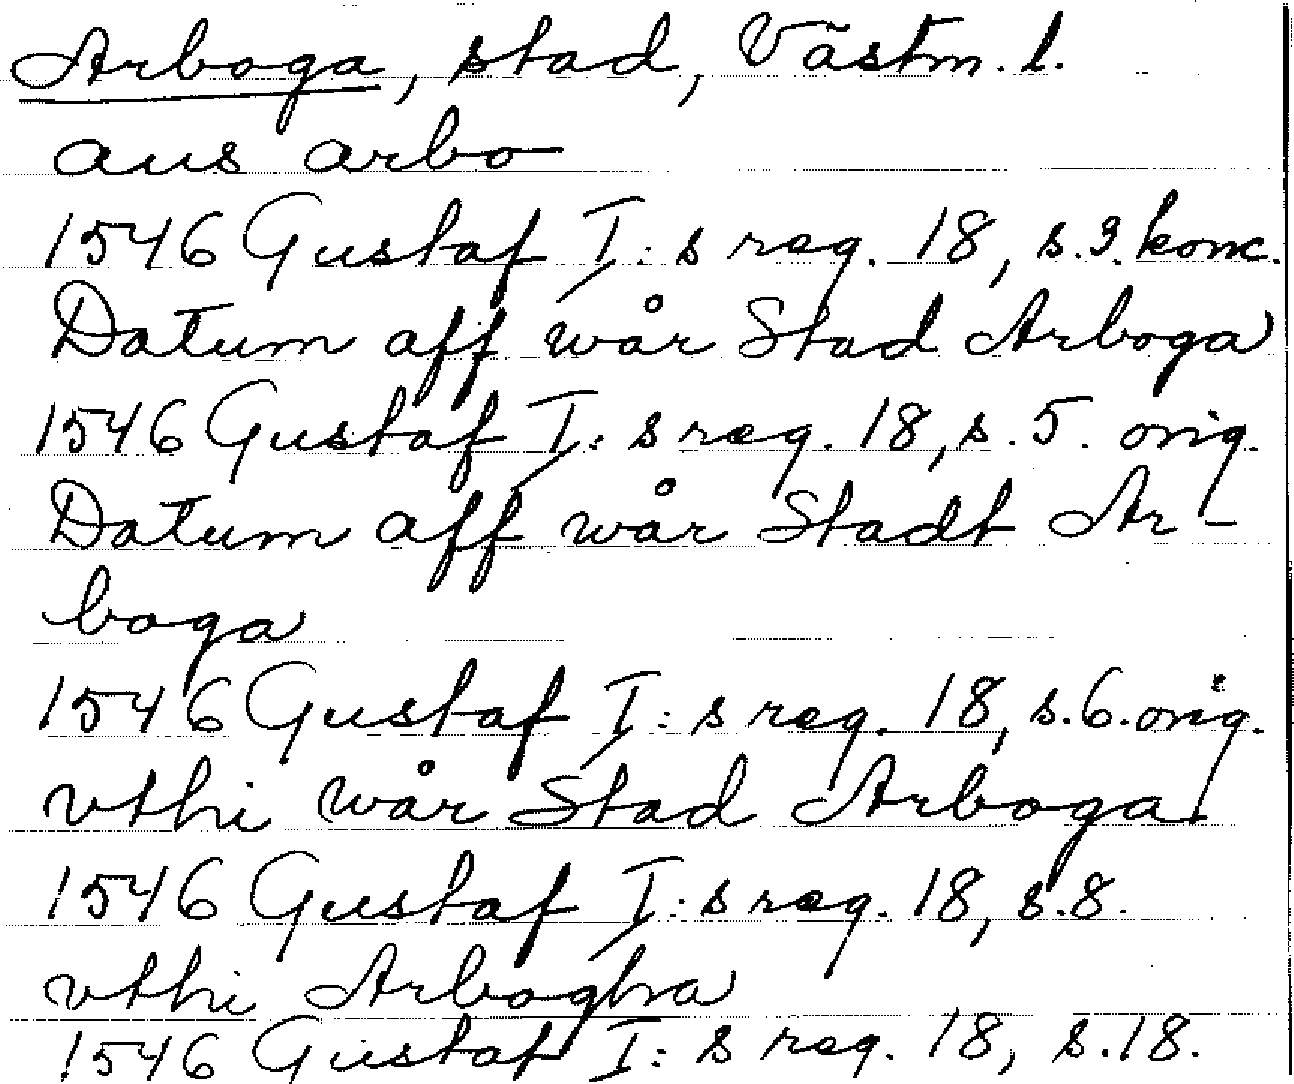 Arboga, stad, Västm. l.
aus arbo
1546 Gustaf I: s reg. 18, s. 3. konc.
Datum aff wår Stad Arboga
1546 Gustaf I: s reg. 18, s. 5. orig.
Datum aff wår Stadt Ar-
boga
1546 Gustaf I: s reg. 18, s. 6. orig.
vthi wår Stad Arboga
1546 Gustaf I: s reg. 18, s. 8.
vthi Arbogha
1546 Gustaf I: s reg. 18, s. 18.